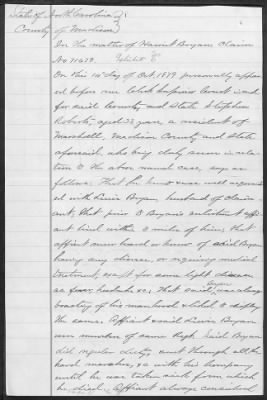 State of North Carolina
County of Madison
In the matter of Bryan Claim
No Exhibit E
On this 14 day of Oct. 1879 personally appeared
before me Clerk Superior Court in and
for said County and State Stephen
Roberts, aged 33 years, a resident of
Marshall, Madison County and State
aforesaid, who being duly sworn in relation
to the above named case, says as
follows. That he was well acquainted
with Bryan, husband of Claimant;
that prior to Bryan's enlistment affiant
lived within 2 miles of him; that
affiant never heard or knew of said Bryan
having any disease, or requiring medical
treatment, except for some light disease
as fever, headache, &c, That said Bryan was always
boasting of his manhood & liked to display
the same. Affiant said Bryan
was member of same Regt. Said Bryan
did regular duty, went through all the
hard marches, &c with his company
until he was taken with from which
he died. Affiant always considered